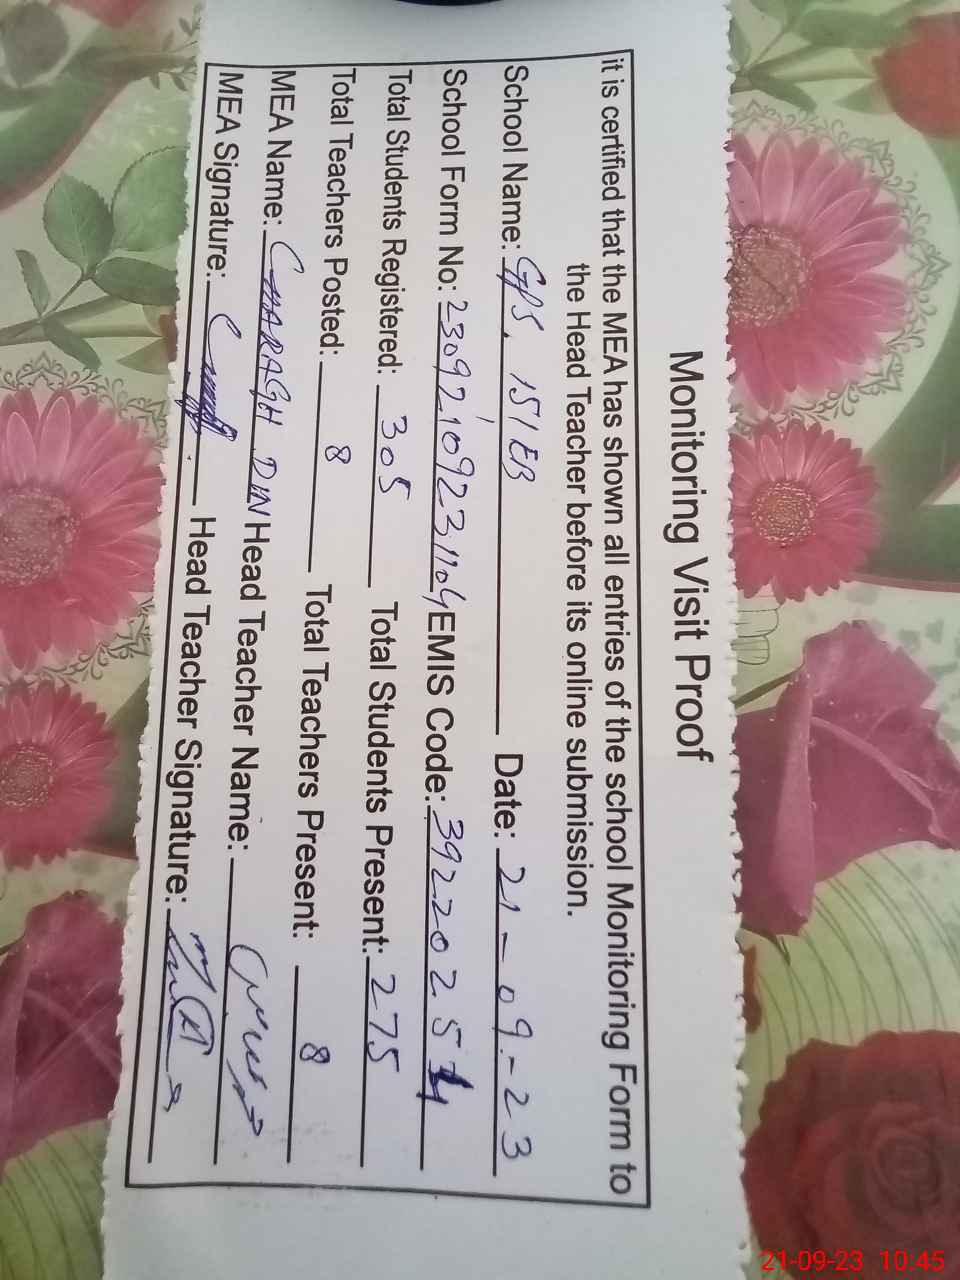 Monitoring Visit Proof
it is certified that the MEA has shown all entries of the school Monitoring Form to
the Head Teacher before its online submission.
School Name: GPS. 151EB Date: 21-09-23
School Form No: 23092109231104 EMIS Code: 39220254
Total Students Registered: 305 Total Students Present: 275
Total Teachers Posted: 8 Total Teachers Present: 8
MEA Name: CHARAGH DIN Head Teacher Name:
MEA Signature: Head Teacher Signature:
21-09-23 10:45